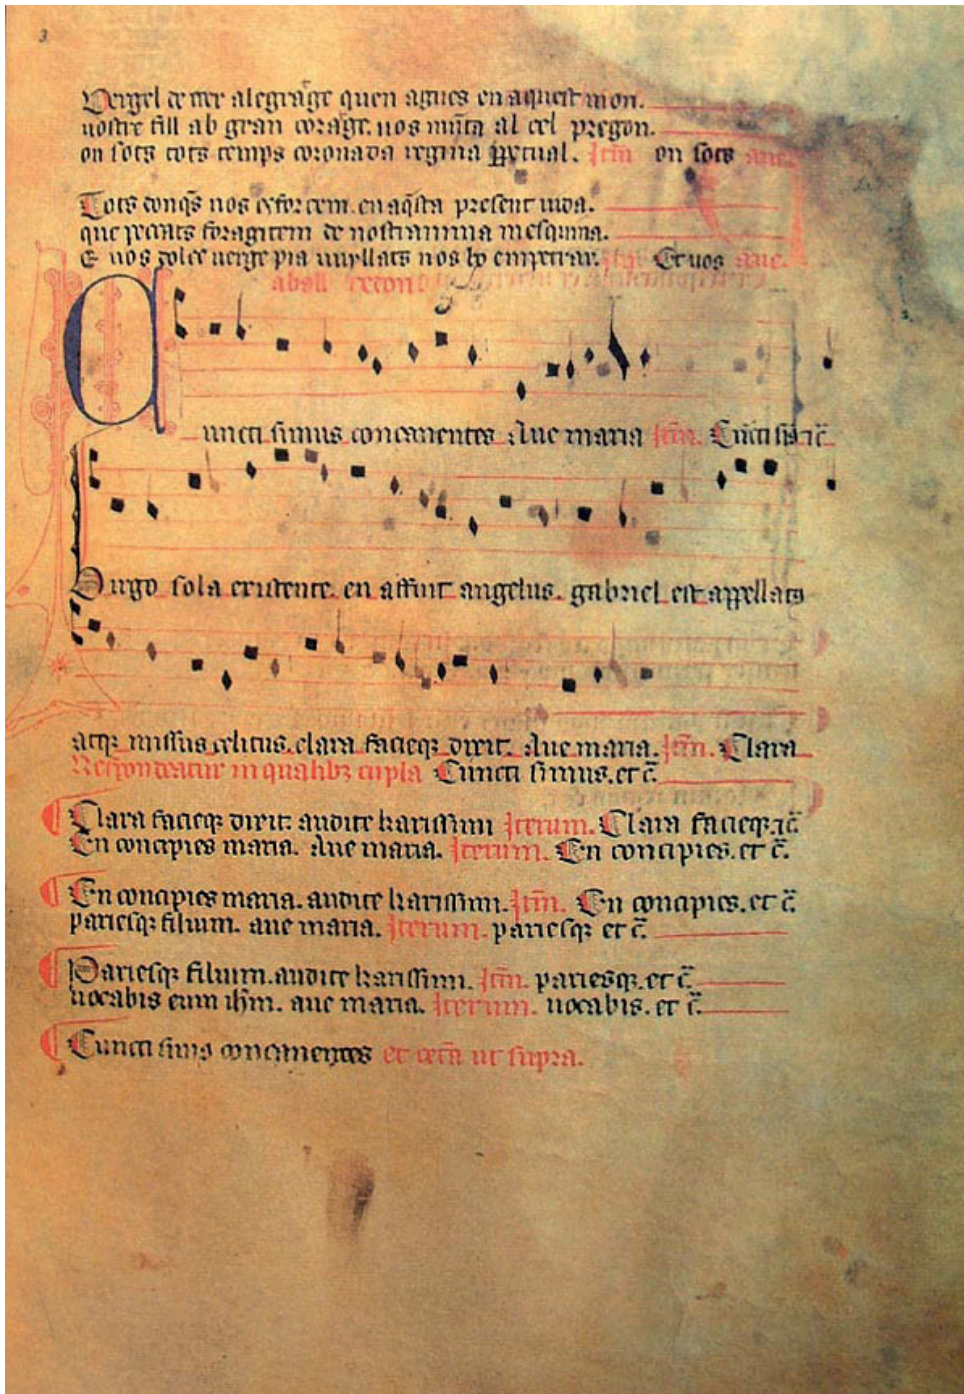 3
Vergel de trer alegra͞ge quen agues en aquest mon.
nostre fill ab gran corage. uos mu͞ta al cel pregon.
on sots tots temps coronada regina ꝑpetual. Jte͞m on sots aue
Tots donq͞s nos esforcem. en aq͞sta present uida.
que pecats foragitem de nostranima mesquina.
E uos dolce uerge pia uuyllats nos ho empetrar. Et uos aue.
aball redon
Cuncti simus concanentes Aue maria Jte͞m. Cu͞cti sim᷒ ⁊c͞
Uirgo sola existente. en affuit angelus. gabriel est appellatus
atqꝫ missus celitus. clara facieqꝫ dixit. Aue maria. Jte͞m. Clara
Respondeatur in qualibꝫ cupla Cuncti simus. et c͞.
Clara facieqꝫ dixit: audite karissimi Jterum. Clara facieqꝫ. ⁊c͞
En concipies maria. Aue maria. Jterum. En concipies. et c͞.
En concipies maria. audite karissimi. Jte͞m. En concipies. et c͞
pariesqꝫ filium. aue maria. Jterum. pariesqꝫ et c͞.
Pariesqꝫ filium. audite karissimi. Jte͞m. pariesqꝫ. et c͞.
uocabis eum ih͞m. aue maria. Jterum. uocabis. et c͞.
Cuncti sim᷒ concanentes et cete͞ra ut supra.